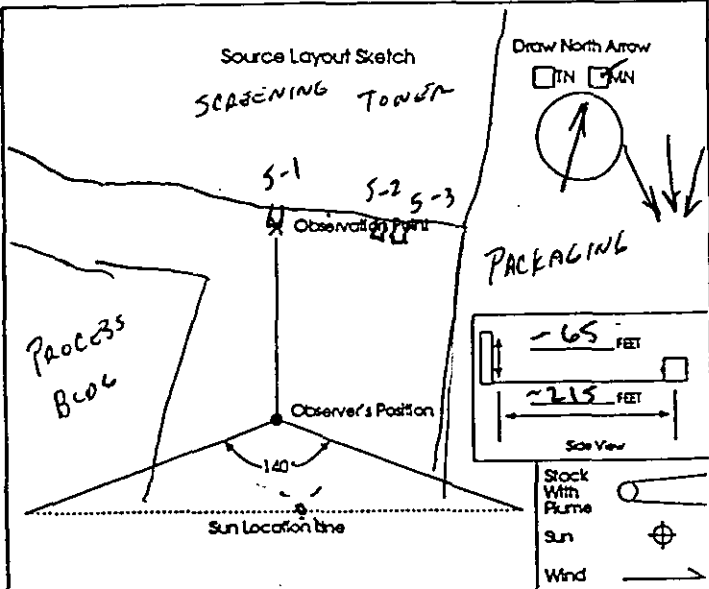 Source Layout Sketch
SCREENING TOWER
Draw North Arrow
TN MN
S-1
S-2 S-3
Observation Point
PACKAGING
PROCESS
BLDG
~65 FEET
~215 FEET
Side View
Observer's Position
140
Sun Location Line
Stack
With
Plume
Sun
Wind